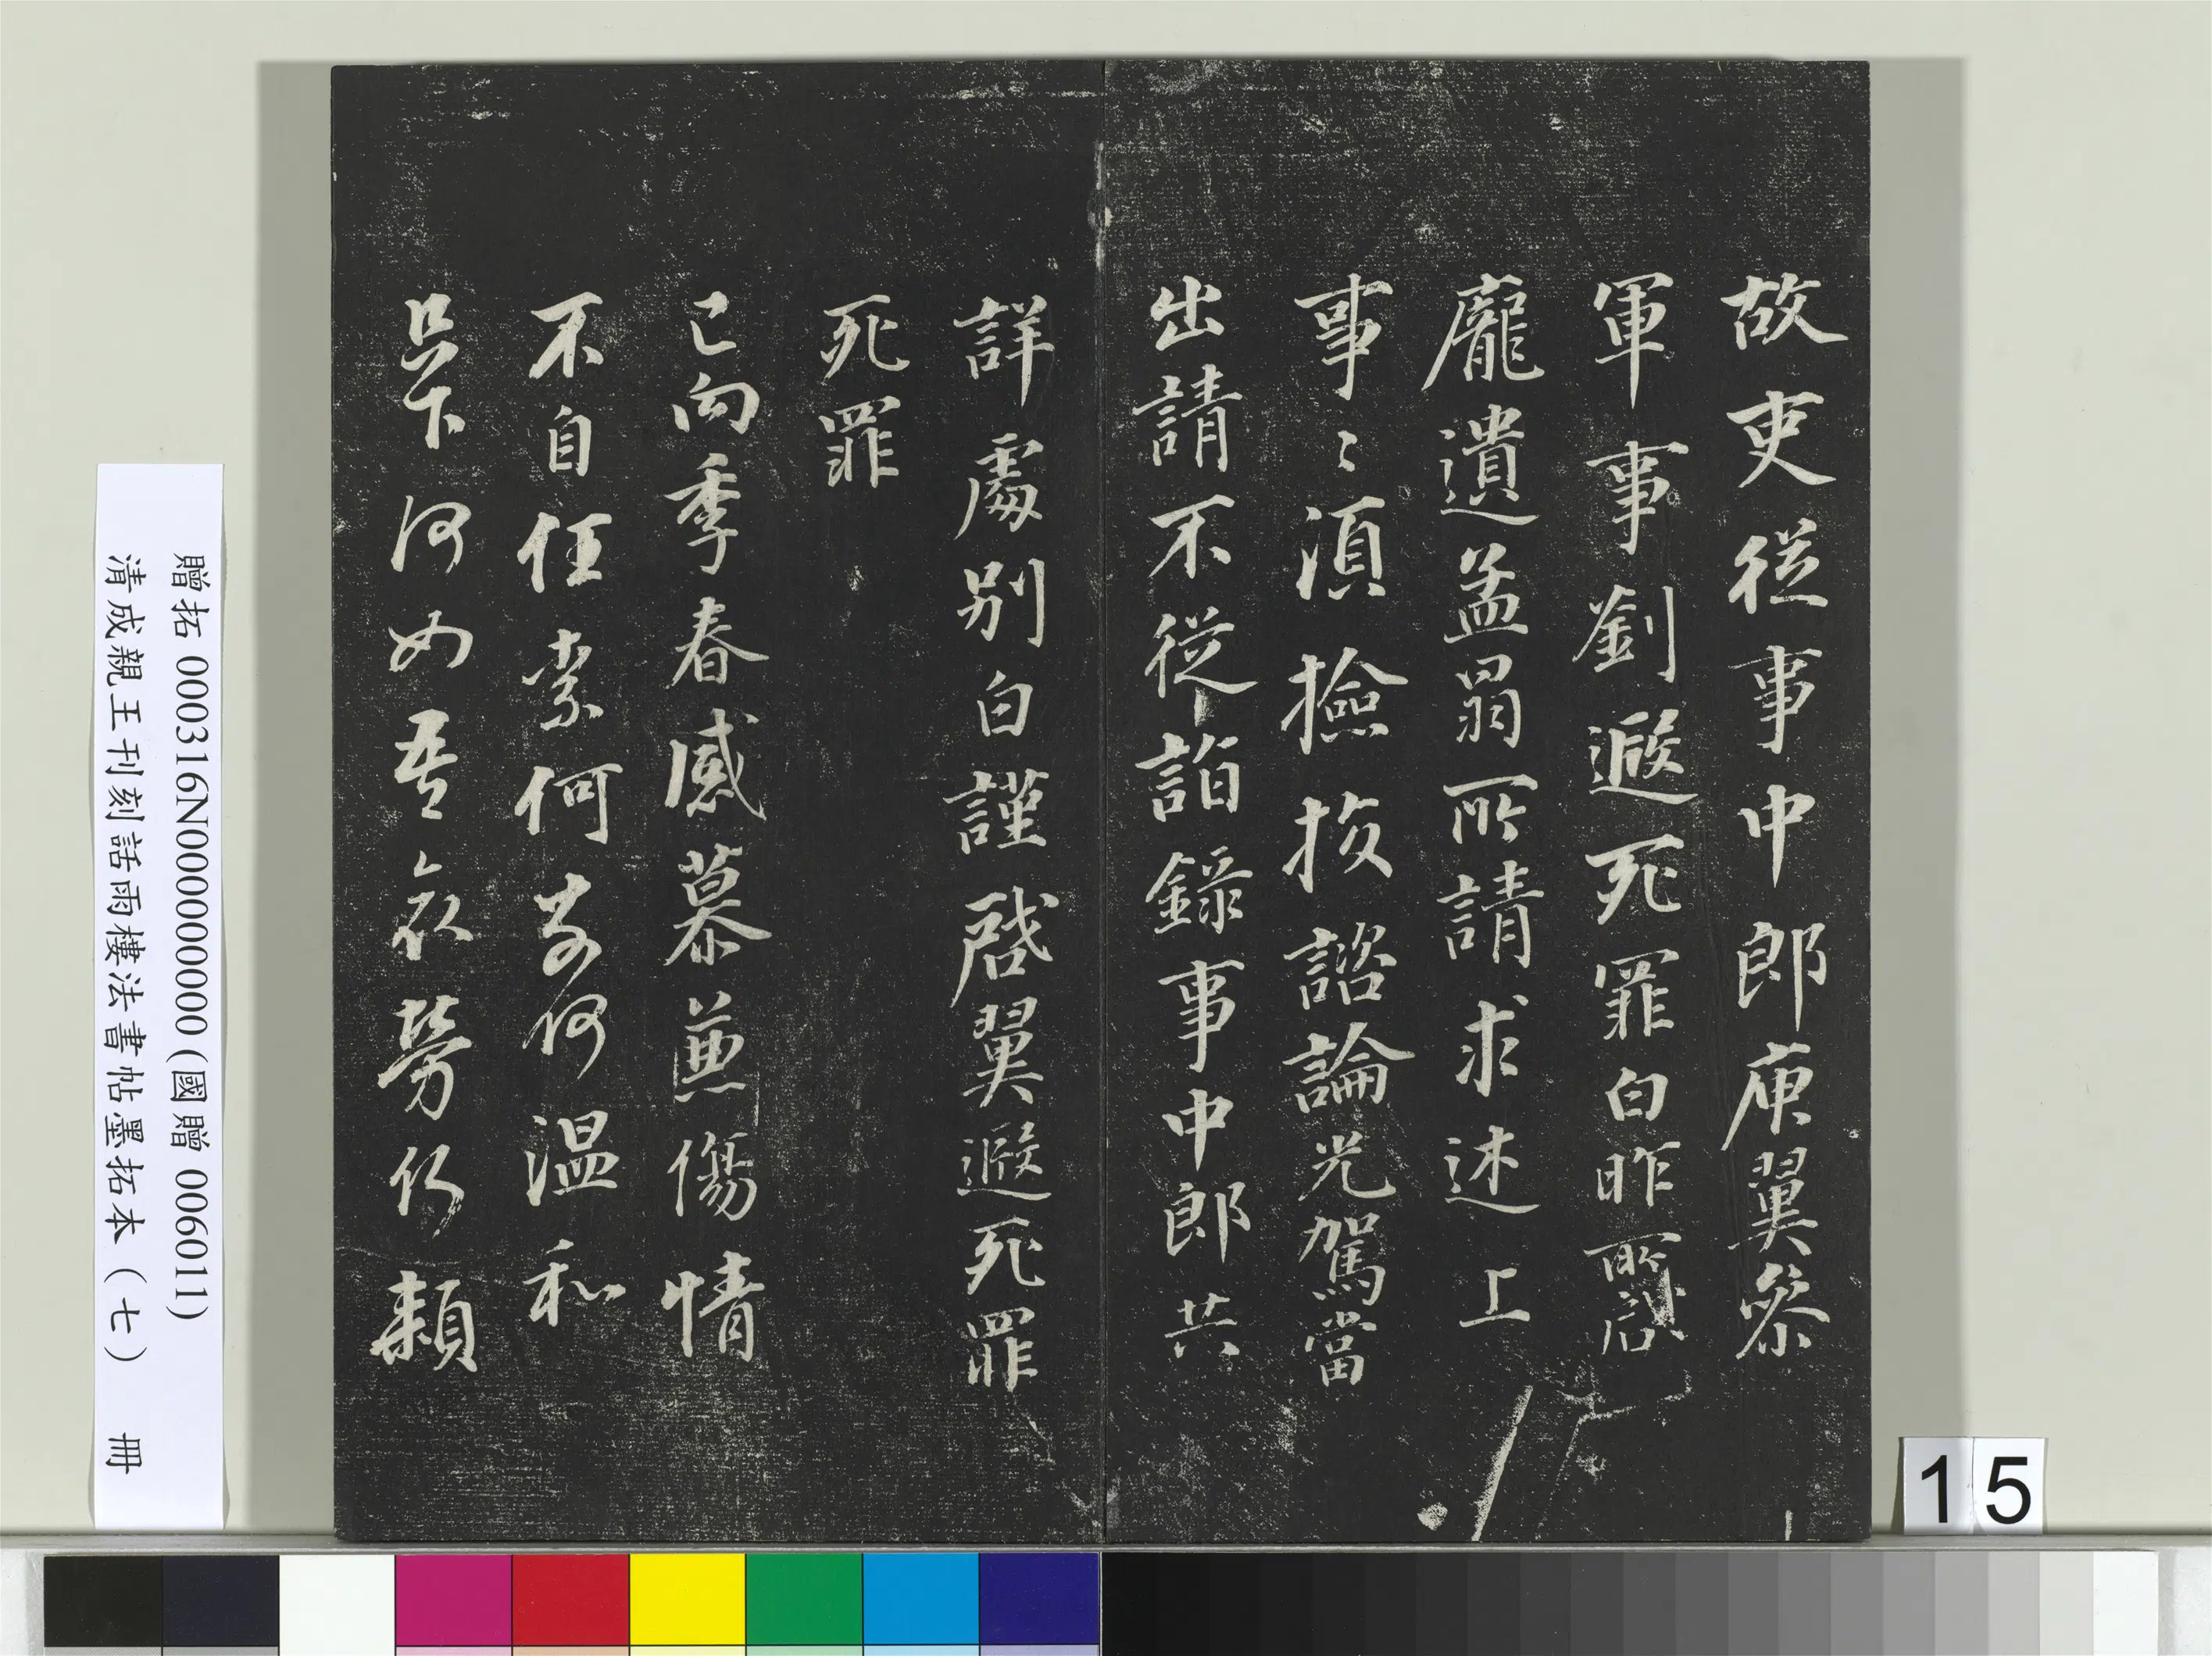 故吏從事中郎庾翼參
軍事劉遐死罪白昨所
龐遺孟所請求述上
事〻須檢挍諮論光駕當
出請不從詣錄事中郎共
詳處別白謹啓翼遐死罪
死罪
已向季春感慕兼傷情
不自任柰何柰何溫和
足下何如吾哀勞何賴
贈拓 000316N000000000(國贈 006011)
清成親王刊刻話雨樓法書帖墨拓本(七) 冊
15